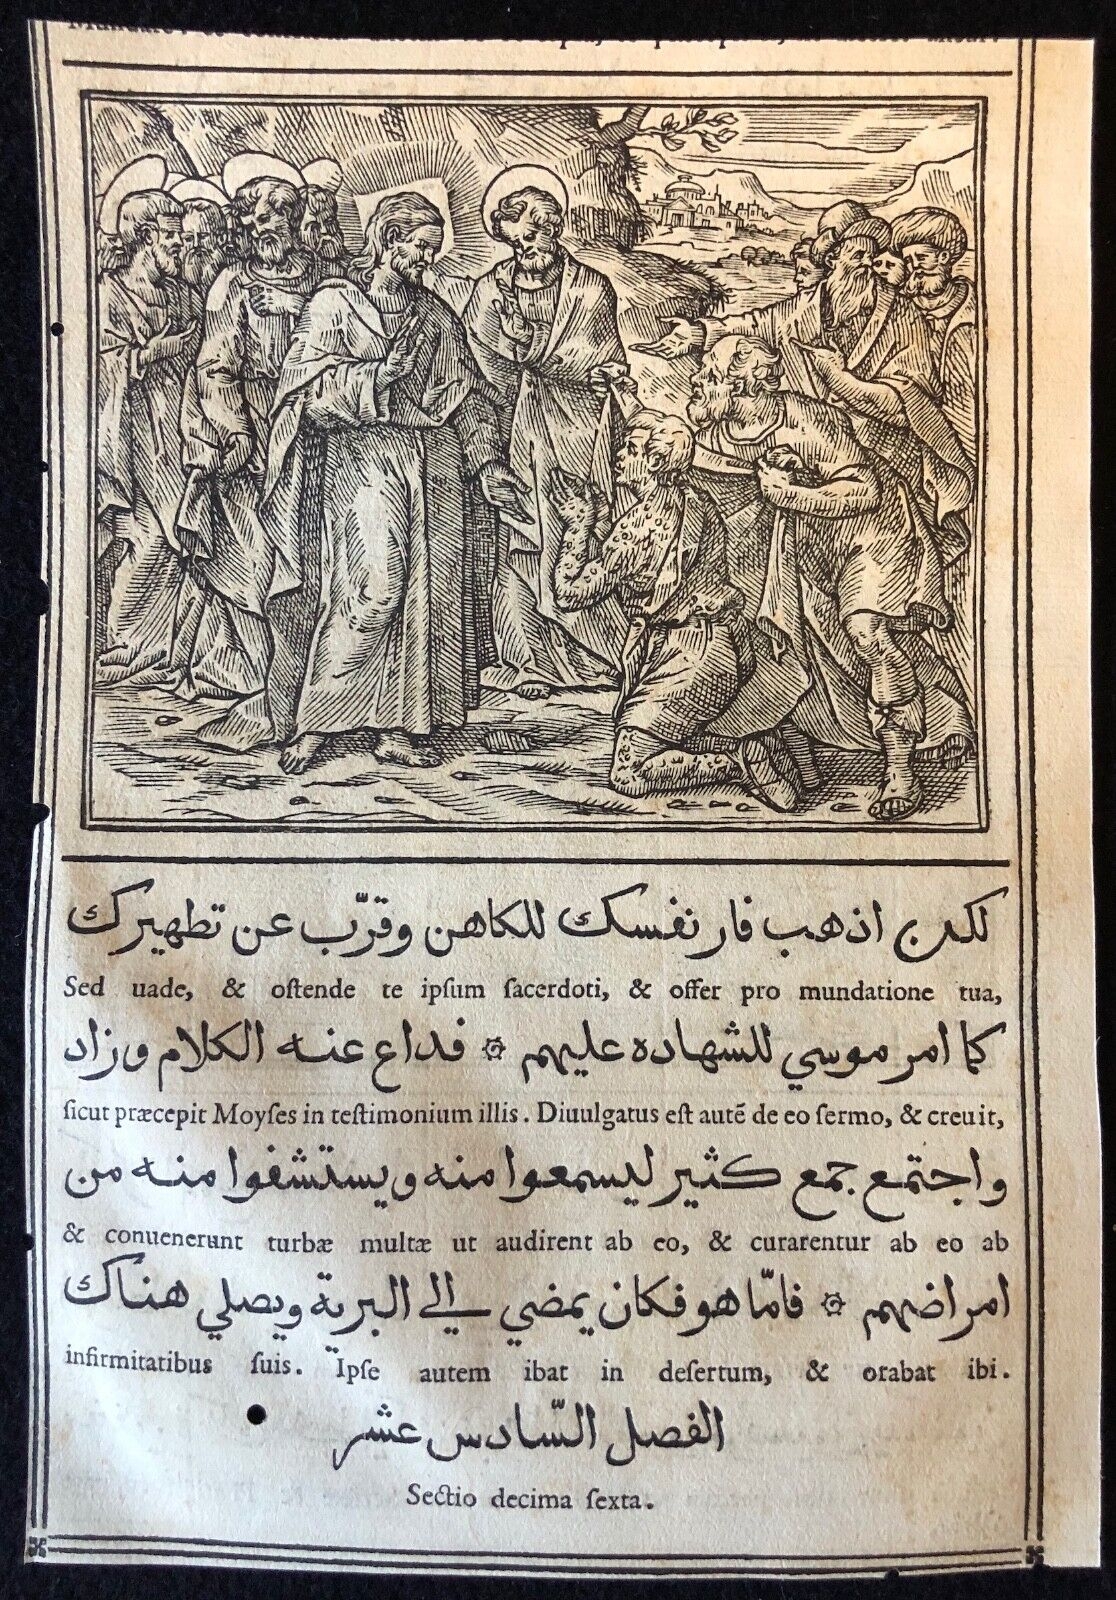 لكن اذهب فار نفسك للكاهن وقرّب عن تطهيرك
Sed uade, & oſtende te ipſum ſacerdoti, & offer pro mundatione tua,
كما امر موسي للشهاده عليهم ۞ فداع عنه الكلام وزاد
ſicut præcepit Moyſes in teſtimonium illis. Diuulgatus eſt autē de eo ſermo, & creuit,
واجتمع جمع كثير ليسمعوا منه ويستشفوا منه من
& conuenerunt turbæ multæ ut audirent ab eo, & curarentur ab eo ab
امراضهم ۞ فامّا هو فكان يمضي الي البرية ويصلي هناك
infirmitatibus ſuis. Ipſe autem ibat in deſertum, & orabat ibi.
الفصل السّادس عشر
Sectio decima ſexta.